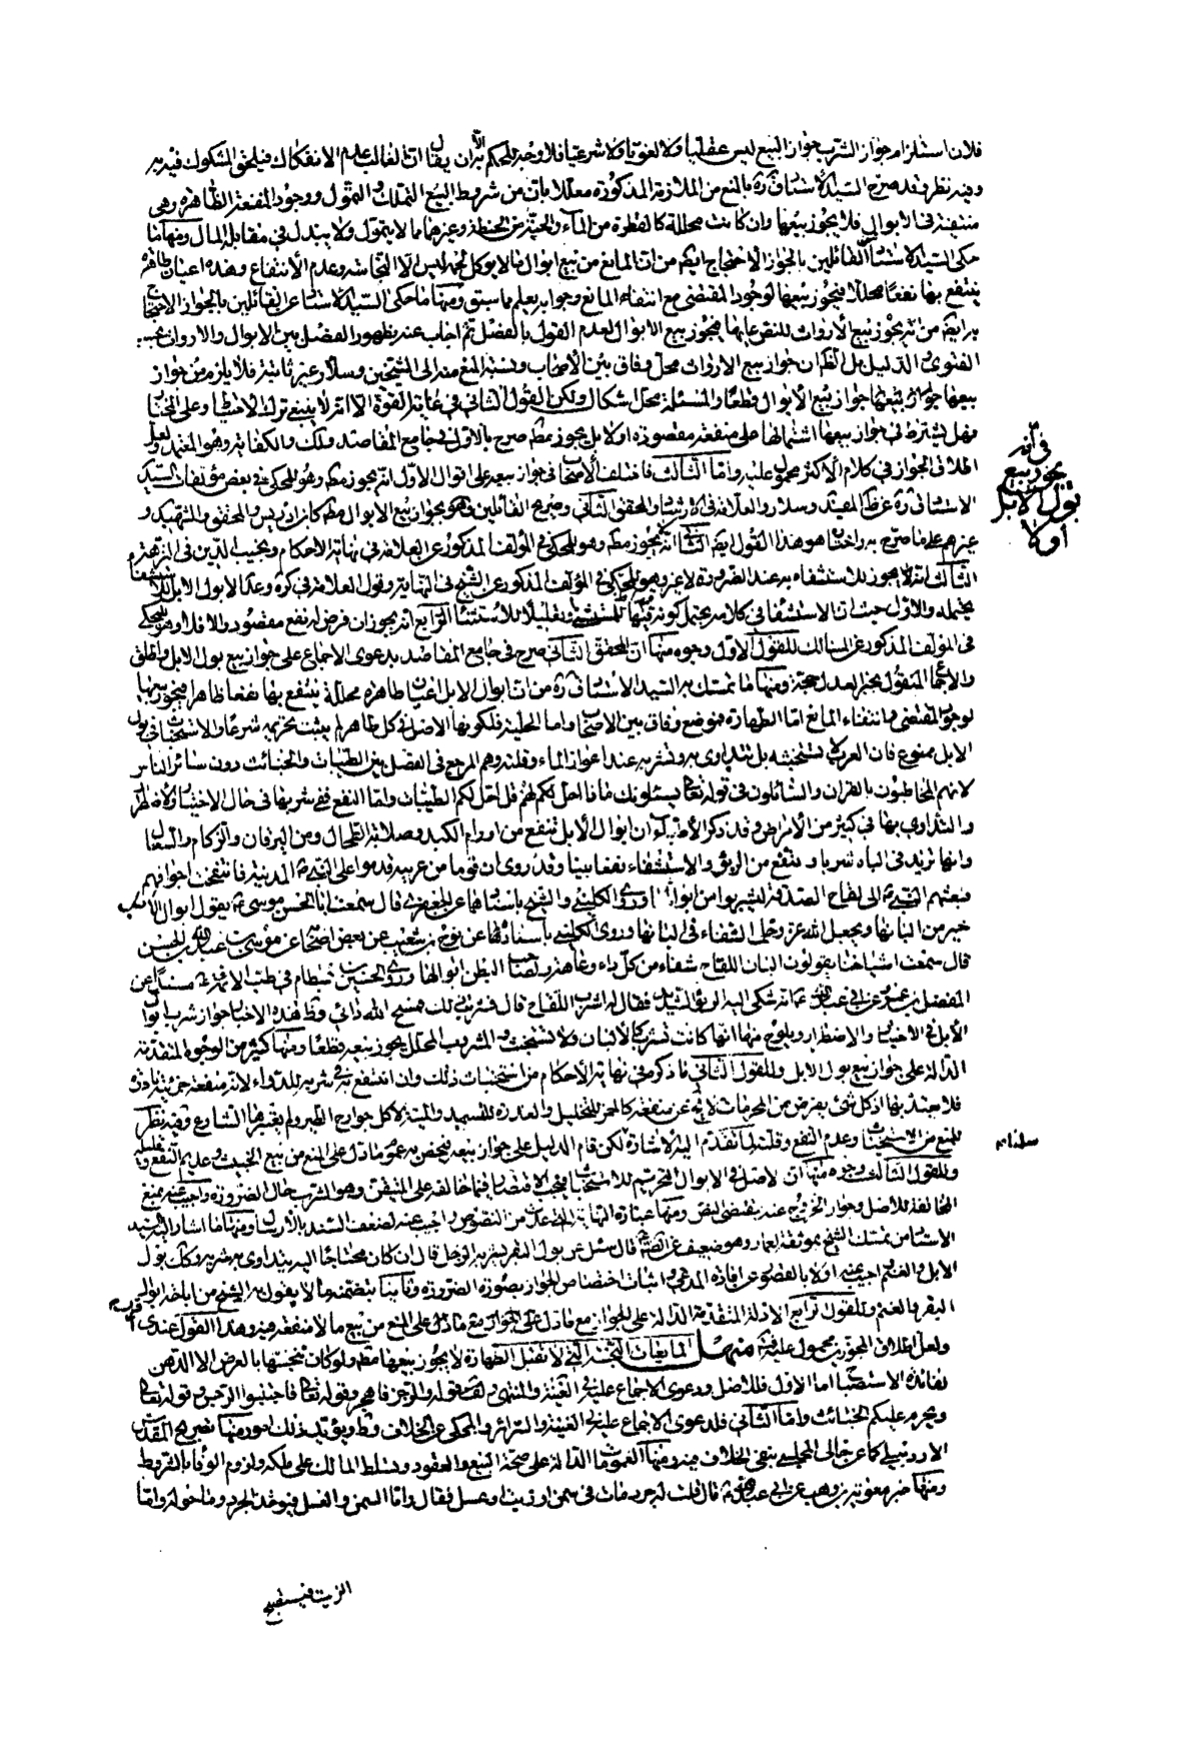 فلان استلزام جواز الشرب جواز البيع ليس عقليا ولا لغويا ولا شرعيا فلا وجه للحكم به الا ان يقال ان الغالب عدم الانفكاك فيلحق المشكوك فيه به
وفيه نظر فقد صرح السيد الاستاد قده بالمنع من الملازمة المذكورة معللا بان من شروط البيع التملك والتمول ووجود المنفعة الظاهرة وهى
منتفية فى الابوال فلا يجوز بيعها وان كانت محللة كالقطرة من الماء والحبة من الحنطة وغيرهما مما لا يتمول ولا يبذل فى مقابله المال ومنها ما
حكى السيد الاستاد عن القائلين بالجواز الاحتجاج به من ان المانع من بيع ابوال ما لا يوكل لحمه ليس الا النجاسة وعدم الانتفاع وهذه اعيان طاهرة
ينتفع بها نفعا محللا فيجوز بيعها لوجود المقتضى مع انتفاء المانع وجوابه يعلم مما سبق ومنها ما حكى السيد الاستاد عن القائلين بالجواز الاحتجاج
به ايضا من انه يجوز بيع الاروات للنص عليها فيجوز بيع الابوال لعدم القول بالفصل ثم اجاب عنه بظهور الفصل بين الابوال والاروات بحسب
الفتوى والدليل بل الظاهر ان جواز بيع الاروات محل وفاق بين الاصحاب ونسبة المنع منه الى الشيخين وسلار غير ثابتة فلا يلزم من جواز
بيعها جواز بيع الابوال قطعا والمسئلة محل اشكال ولكن القول الثانى فى غاية القوة الا انه لا ينبغى ترك الاحتياط وعلى المختار
فهل يشترط فى جواز بيعها اشتمالها على منفعة مقصودة اولا بل يجوز مطلقا صرح بالاول فى جامع المقاصد ولك والكفاية وهو المعتمد ولعل
اطلاق الجواز فى كلام الاكثر محمول عليه واما الثالث فاختلف الاصحاب فى جواز بيعه على اقوال الاول انه يجوز مطلقا وهو المحكى فى بعض مؤلفات السيد
الاستاد قده عن ظاهر المفيد وسلار والعلامة فى الارشاد والمحقق الثانى وصريح القائلين بجواز بيع الابوال مطلقا كابن ادريس والمحقق والشهيد و
غيرهم على ما صرح به واختار هو هذا القول ايضا الثانى انه لا يجوز مطلقا وهو المحكى فى المؤلف المذكور عن العلامة فى نهاية الاحكام ونجيب الدين فى النزهة
الثالث انه لا يجوز للاستشفاء به عند الضرورة لا غير وهو المحكى فى المؤلف المذكور عن الشيخ فى النهاية وقول العلامة فى كره وعد الابوال الابل للاستشفاء
يحتمله والاول حيث ان الاستشفاء فى كلامه يحتمل كونه قيدا للمستثنى وتعليلا للاستثناء الرابع انه يجوز ان فرض له نفع مقصود والا فلا وهو المحكى
فى المؤلف المذكور عن المسالك للقول الاول وجوه منها ان المحقق الثانى صرح فى جامع المقاصد بدعوى الاجماع على جواز بيع بول الابل واطلق
والاجماع المنقول بخبر العدل حجة ومنها ما تمسك به السيد الاستاد قده من ان ابوال الابل اعيان طاهرة محللة ينتفع بها نفعا ظاهرا فيجوز بيعها
لوجود المقتضى وانتفاء المانع اما الطهارة فموضع وفاق بين الاصحاب واما الحلية فلكونها الاصل فى كل طاهر لم يثبت تحريمه شرعا والاستخباث فى بول
الابل ممنوع فان العرب لا تستخبثه بل تتداوى به وتشربه عند اعواز الماء وقلته وهم المرجع فى الفصل بين الطيبات والخبائث دون سائر الناس
لانهم المخاطبون بالقران والسائلون فى قوله تعالى يسئلونك ماذا احل لهم قل احل لكم الطيبات واما النفع ففى شربها فى حال الاختيار والاضطرار
والتداوى بها فى كثير من الامراض وقد ذكر الاطباء ان ابوال الابل تنفع من اورام الكبد وصلابة الطحال ومن اليرقان والزكام والسعال
وانها تزيد فى الباه شربا وتنفع من الربو والاستسقاء نفعا بينا وقد روى ان قوما من عرينة قدموا على النبى المدينة فانتفخت اجوافهم
فبعثهم النبى الى لقاح الصدقة ليشربوا من ابوالها وروى الكلينى والشيخ باسنادهما عن الجعفرى قال سمعت ابا الحسن موسى يقول ابوال الابل
خير من البانها ويجعل الله عز وجل الشفاء فى البانها وروى الكلينى باسناده عن نوح بن شعيب عن بعض اصحابنا عن موسى بن عبد الله بن الحسن
قال سمعت اشياخنا يقولون البان اللقاح شفاء من كل داء وعاهة ولصاحب البطن ابوالها وروى الحسين بن بسطام فى طب الائمة مسندا عن
المفضل بن عمر عن ابى عبد الله انه شكى اليه الربو الشديد فقال له اشرب اللقاح قال فشربت ذلك فمسح الله دائى وظاهر هذه الاخبار جواز شرب ابوال
الابل فى الاختيار والاضطرار ويلوح منها انها كانت تشرب كالالبان ولا تستخبث والمشروب المحلل يجوز بيعه قطعا ومنها كثير من الوجوه المتقدمة
الدالة على جواز بيع بول الابل وللقول الثانى ما ذكره فى نهاية الاحكام من استخباث ذلك وان انتفع به فى شربه للدواء لانه منفعة جزئية نادرة
فلا يعتد بها اذ كل شئ يفرض من المحرمات لا يخ عن منفعة كالخمر للتخليل والعذرة للتسميد والميتة لاكل جوارح الطير ولم يعتبرها الشارع وفيه نظر
للمنع من الاستخباث وعدم النفع وقلته لما تقدم اليه الاشارة لكن قام الدليل على جواز بيعه فيخص به عموم ما دل على المنع من بيع الخبيث وعديم النفع وقليله
وللقول الثالث وجوه منها ان الاصل فى الابوال التحريم للاستخباث فيجب الاقتصار فيما خالفه على المتيقن وهو الشرب حال الضرورة واجيب عنه بمنع
المخالفة للاصل وجواز الخروج عنه بمقتضى النص ومنها عبارة النهاية واجيب عنه لضعف السند بالارسال ومنها ما اشار اليه السيد
الاستاد من تمسك الشيخ بموثقة لعمار وهو ضعيف عن الصادق قال سئل عن بول البقر يشربه الرجل قال ان كان محتاجا اليه يتداوى به شربه وكك بول
الابل والغنم واجيب عنه اولا بالقصور عن افادة المدعى واثبات اختصاص الجواز بصورة الضرورة وثانيا بتضمنه ما لا يقول به الشيخ من اباحة ابوال
البقر والغنم وللقول الرابع الادلة المتقدمة الدالة على الجواز مع ما دل على الجواز مع ما دل على المنع من بيع ما لا منفعة فيه وهذا القول عندى
ولعل اطلاق المجوزين محمول عليه منهل المايعات النجسة التى لا تقبل الطهارة لا يجوز بيعها مطلقا ولو كان نجستها بالعرض الا الدهن
لفائدة الاستصباح اما الاول فللاصل ودعوى الاجماع عليه فى الغنية والمنتهى ولقوله والرجز فاهجر وقوله تعالى فاجتنبوا الرجس وقوله تعالى
ويحرم عليكم الخبائث واما الثانى فلدعوى الاجماع عليه فى الغنية والسرائر والمحكى عن الخلاف وط ويؤيد ذلك امور منها تصريح المقدس
الاردبيلى كما عن خالى المجلسى بنفى الخلاف فيه ومنها العمومات الدالة على صحة البيع والعقود وتسلط المالك على ملكه ولزوم الوفاء بالشروط
ومنها خبر معوية بن وهب عن ابى عبد الله قال قلت له جرذ مات فى سمن او زيت او عسل فقال واما السمن والعسل فيوخذ الجرذ وما حوله واما
الزيت فيستصبح
فى انه
يجوز بيع
بول الابل
اولا